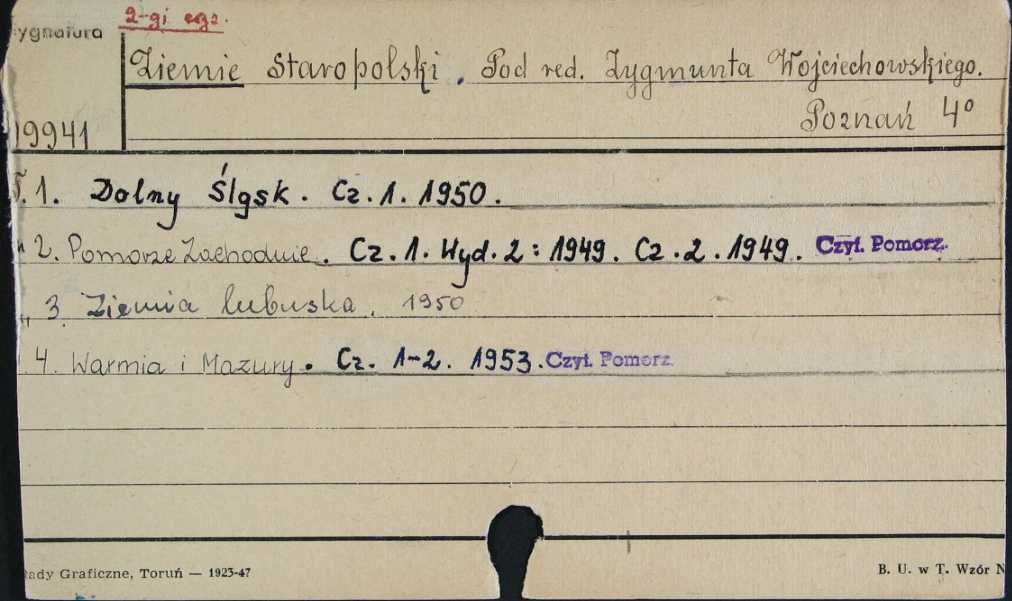 2-gi egz.
ygnatura
Ziemie Staropolski. Pod red. Zygmunta Wojciechowskiego.
Poznań 4°
19941
T. 1. Dolny Śląsk. Cz. 1. 1950.
" 2. Pomorze Zachodnie. Cz. 1. Wyd. 2: 1949. Cz. 2. 1949. Czyt. Pomorz.
" 3. Ziemia lubuska. 1950
4. Warmia i Mazury. Cz. 1-2. 1953. Czyt. Pomorz.
ady Graficzne, Toruń — 1923-47
B. U. w T. Wzór N